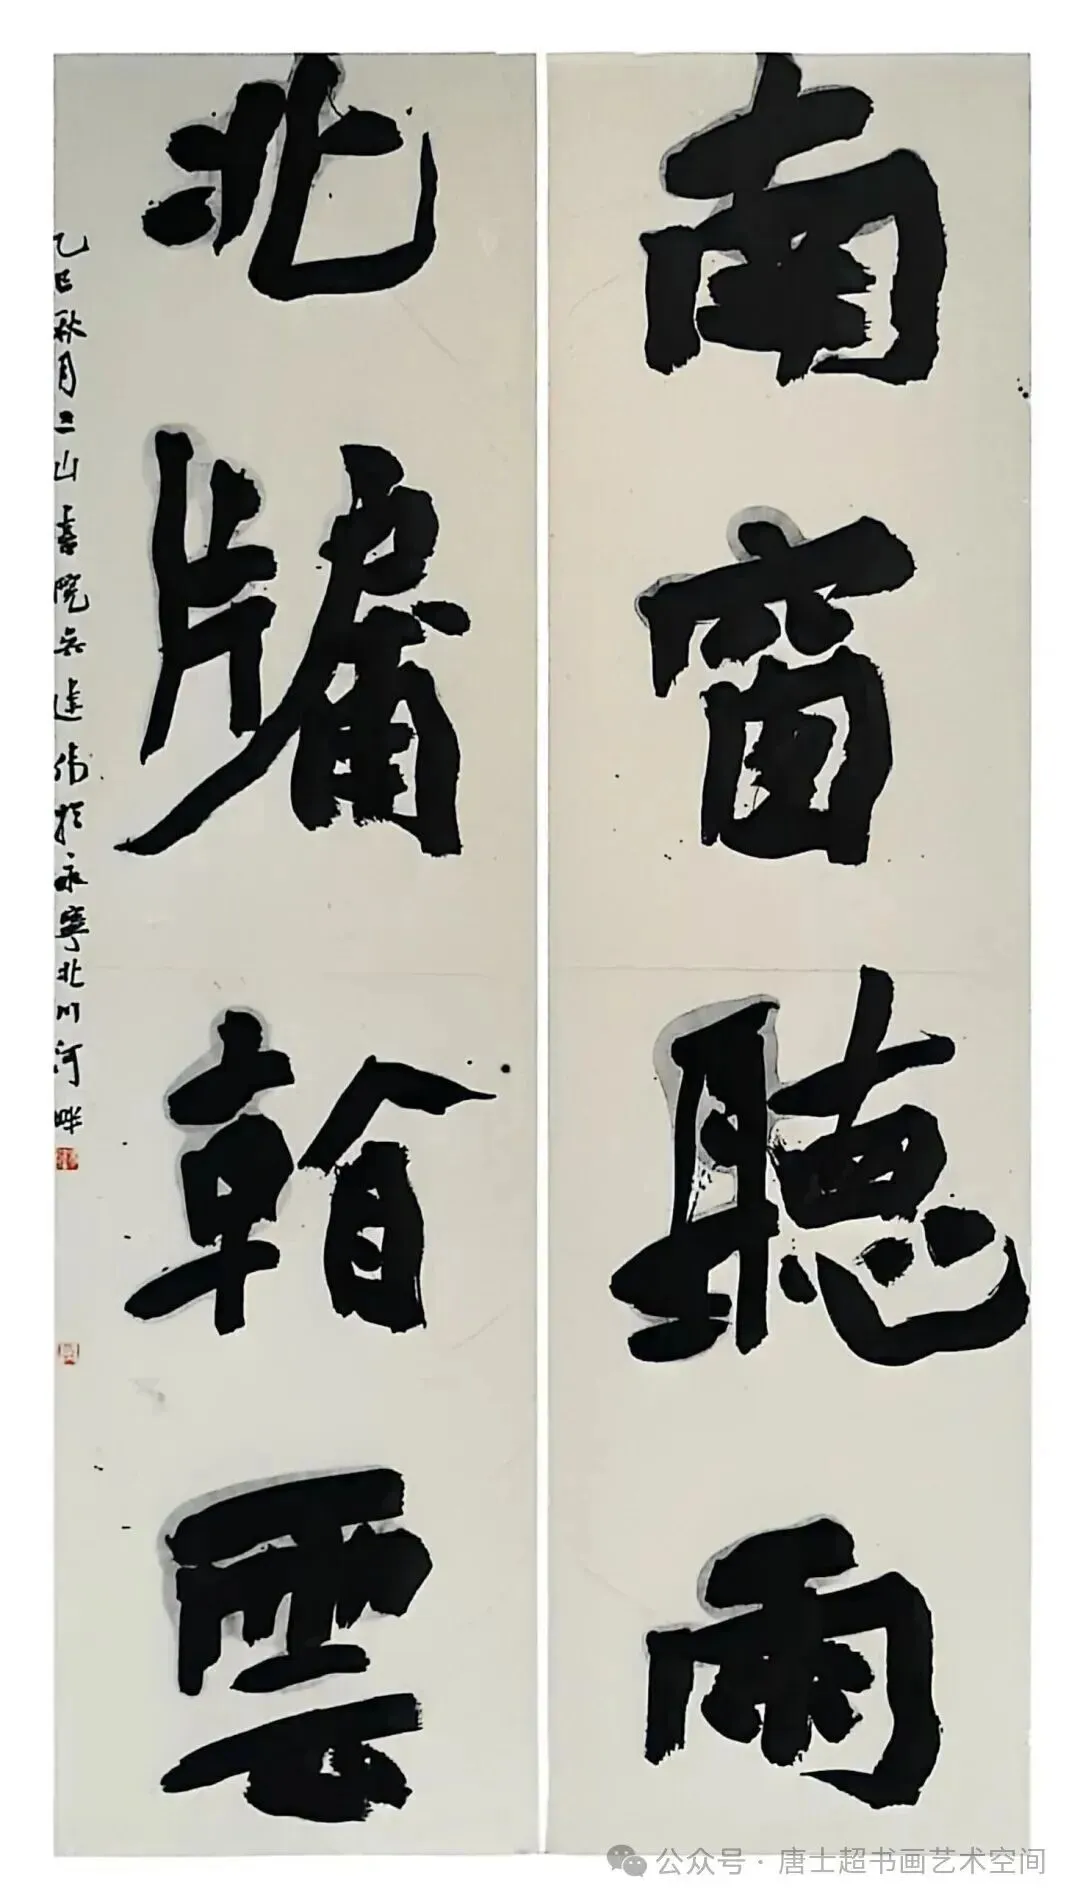 南窗聽雨
北牖看雲
乙巳秋月三山書院建偉於永寧北川河畔
公众号·唐士超书画艺术空间